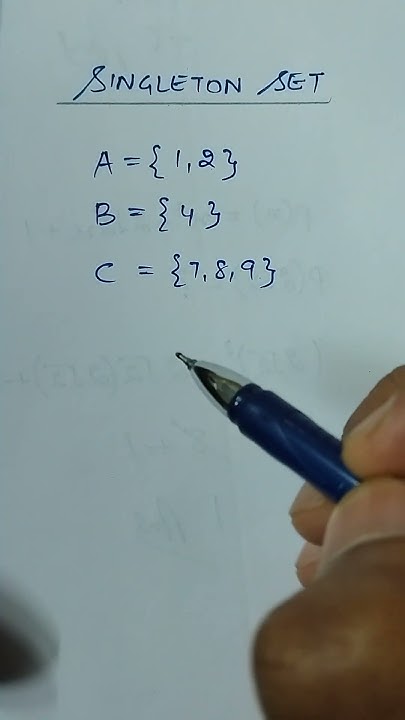 SINGLETON SET
A = {1,2}
B = {4}
C = {7,8,9}